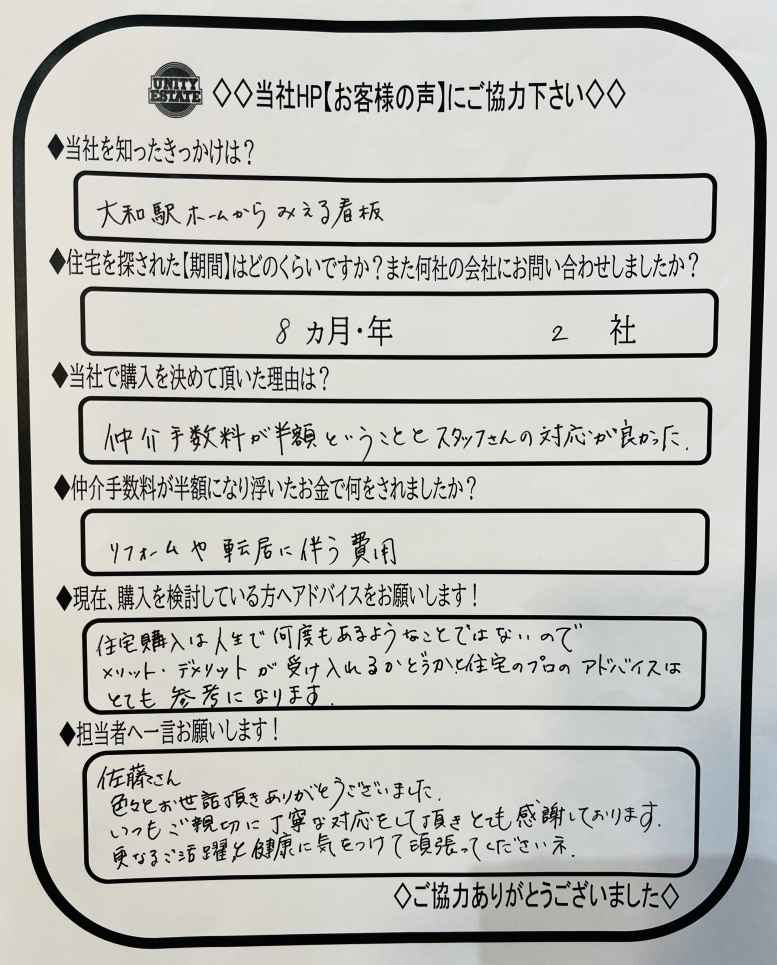 UNITY
ESTATE
◇◇当社HP【お客様の声】にご協力下さい◇◇
◆当社を知ったきっかけは？
大和駅ホームからみえる看板
◆住宅を探された【期間】はどのくらいですか？また何社の会社にお問い合わせしましたか？
8 カ月・年 2 社
◆当社で購入を決めて頂いた理由は？
仲介手数料が半額ということとスタッフさんの対応が良かった.
◆仲介手数料が半額になり浮いたお金で何をされましたか？
リフォームや転居に伴う費用
◆現在、購入を検討している方へアドバイスをお願いします！
住宅購入は人生で何度もあるようなことではないので
メリット・デメリットが受け入れるかどうかと住宅のプロのアドバイスは
とても参考になります.
◆担当者へ一言お願いします！
佐藤さん
色々とお世話頂きありがとうございました.
いつもご親切に丁寧な対応をして頂きとても感謝しております.
更なるご活躍と健康に気をつけて頑張ってくださいネ.
◇ご協力ありがとうございました◇